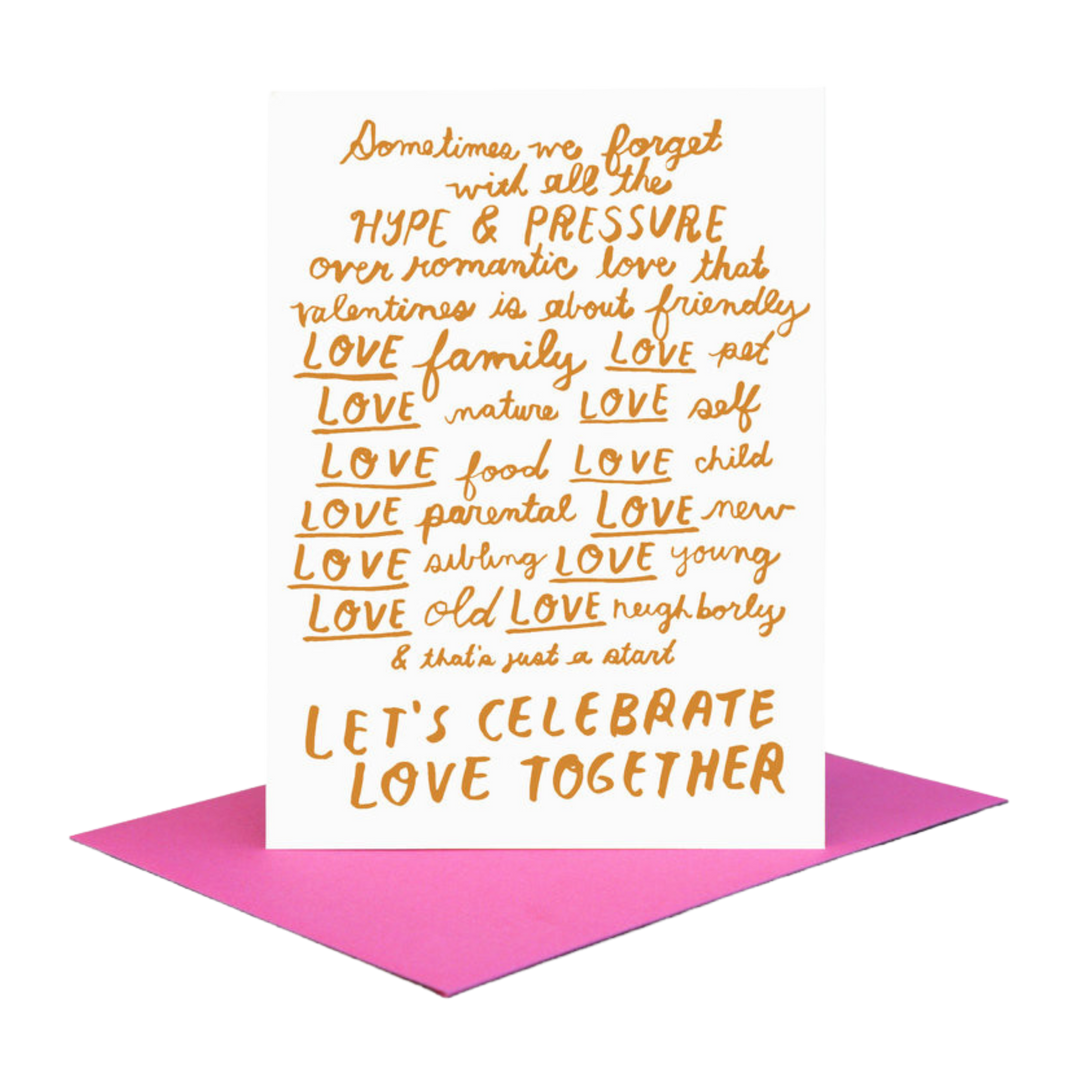 Sometimes we forget
with all the
HYPE & PRESSURE
over romantic love that
valentines is about friendly
LOVE family LOVE pet
LOVE nature LOVE self
LOVE food LOVE child
LOVE parental LOVE new
LOVE sibling LOVE young
LOVE old LOVE neighborly
& that's just a start
LET'S CELEBRATE
LOVE TOGETHER